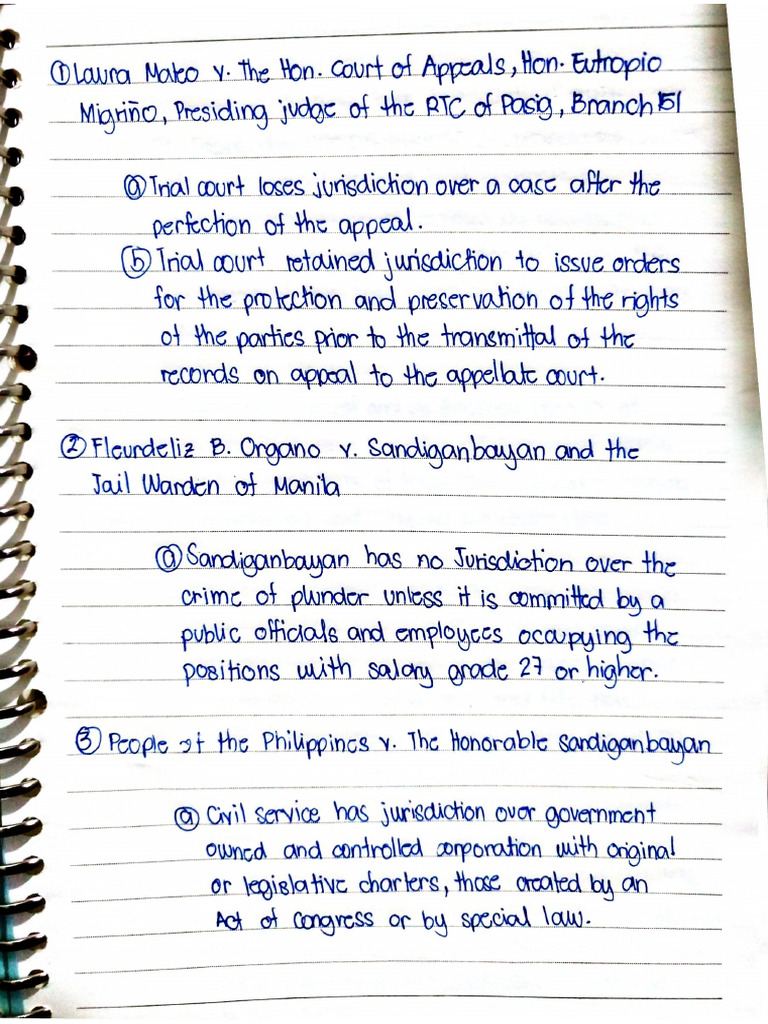 ① Laura Mateo v. The Hon. Court of Appeals, Hon. Eutropio
Migriño, Presiding judge of the RTC of Pasig, Branch 151
ⓐ Trial court loses jurisdiction over a case after the
perfection of the appeal.
ⓑ Trial court retained jurisdiction to issue orders
for the protection and preservation of the rights
of the parties prior to the transmittal of the
records on appeal to the appellate court.
② Fleurdeliz B. Organo v. Sandiganbayan and the
Jail Warden of Manila
ⓐ Sandiganbayan has no Jurisdiction over the
crime of plunder unless it is committed by a
public officials and employees occupying the
positions with salary grade 27 or higher.
③ People of the Philippines v. The Honorable Sandiganbayan
ⓐ Civil service has jurisdiction over government
owned and controlled corporation with original
or legislative charters, those created by an
Act of Congress or by special law.